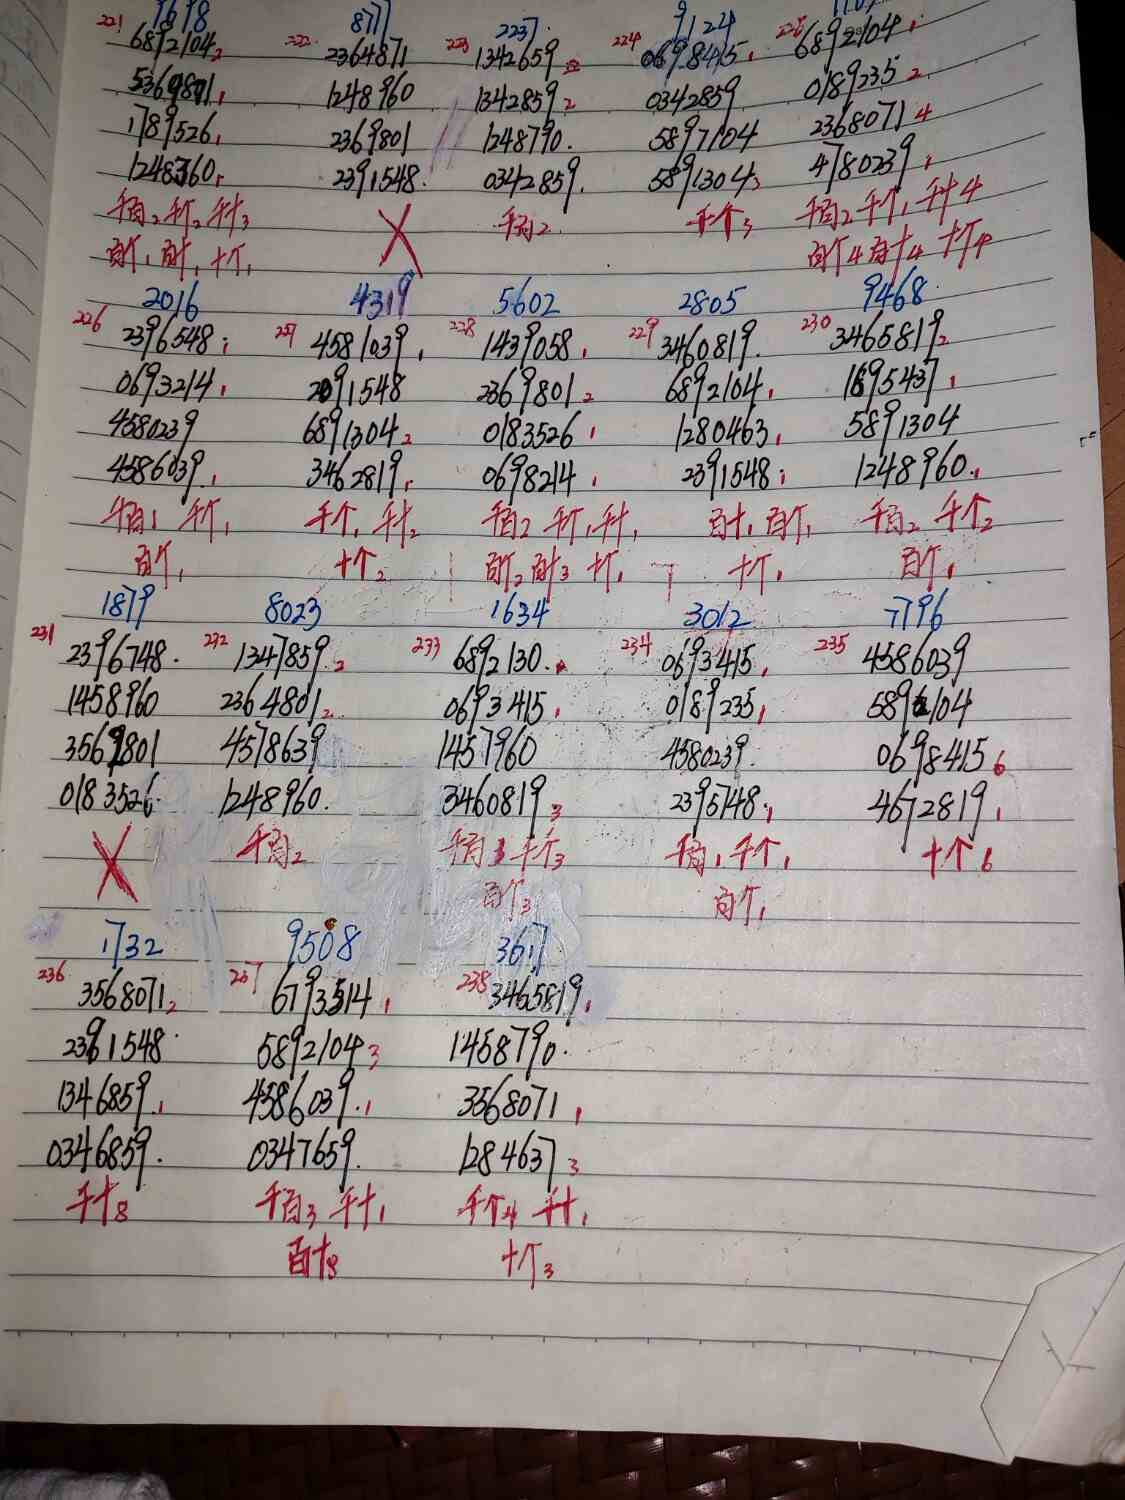 221 1618 8711 2237 9124
6892104 2 222 2364871 223 1342659 224 0698415 1 225 6892104 1
5369801 1 1248960 1342859 2 0342859 0189235 2
1789526 1 2369801 1248790 5897104 2368071 4
1248360 1 2391548 0342859 5891304 3 4780239 1
千百2 千个2 千十3 X 千百2 千个3 千百2 千个1 千十4
百个1 百十1 十个1 百个4 百十4 十个4
2016 4319 5602 2805 9468
226 2396548 1 227 4581039 1 228 1439058 1 229 3460819 230 3465819 2
0693214 1 2091548 2369801 2 6892104 1 1895437 1
4580239 6891304 2 0183526 1 1280463 1 5891304
4586039 1 3462819 1 0698214 1 2391548 1 1248960 1
千百1 千个1 千个1 千十2 千百2 千个1 千十1 百十1 百个1 千百2 千个2
百个1 十个2 百个2 百十3 十个1 十个1 百个1
1879 8023 1634 3012 7796
231 2396748 232 1347859 2 233 6892130 234 0693415 1 235 4586039
1458960 2364801 2 0693415 1 0189235 1 5892104
3569801 4578639 1457960 4580239 0698415 6
0183526 1248960 3460819 3 2395748 1 4672819 1
X 千百2 千百3 千个3 千百1 千个1 十个6
百个3 百个1
1732 9508 3617
236 3568071 2 237 6793514 1 238 3465819 1
2361548 5892104 3 1458790
1346859 1 4586039 1 3568071 1
0346859 0347659 1284637 3
千十8 千百3 千十1 千个4 千十1
百十8 十个3